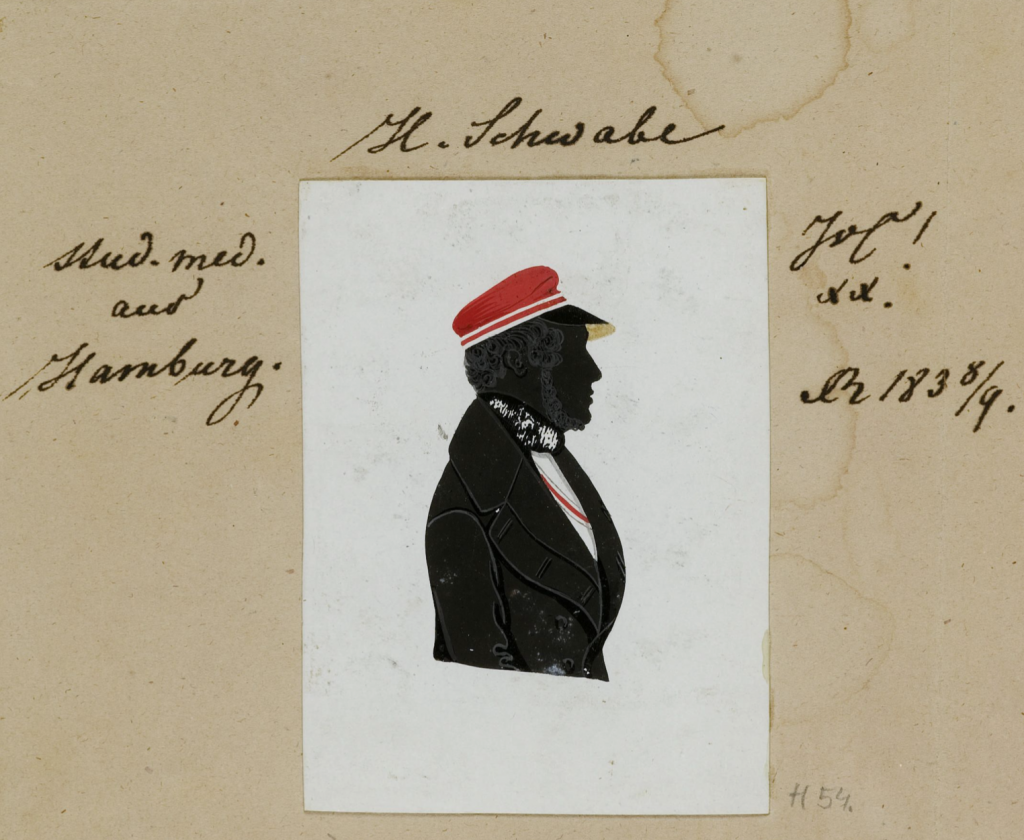 H. Schwabe
stud. med.
aus
Hamburg.
xx.
1838/9.
H 54.